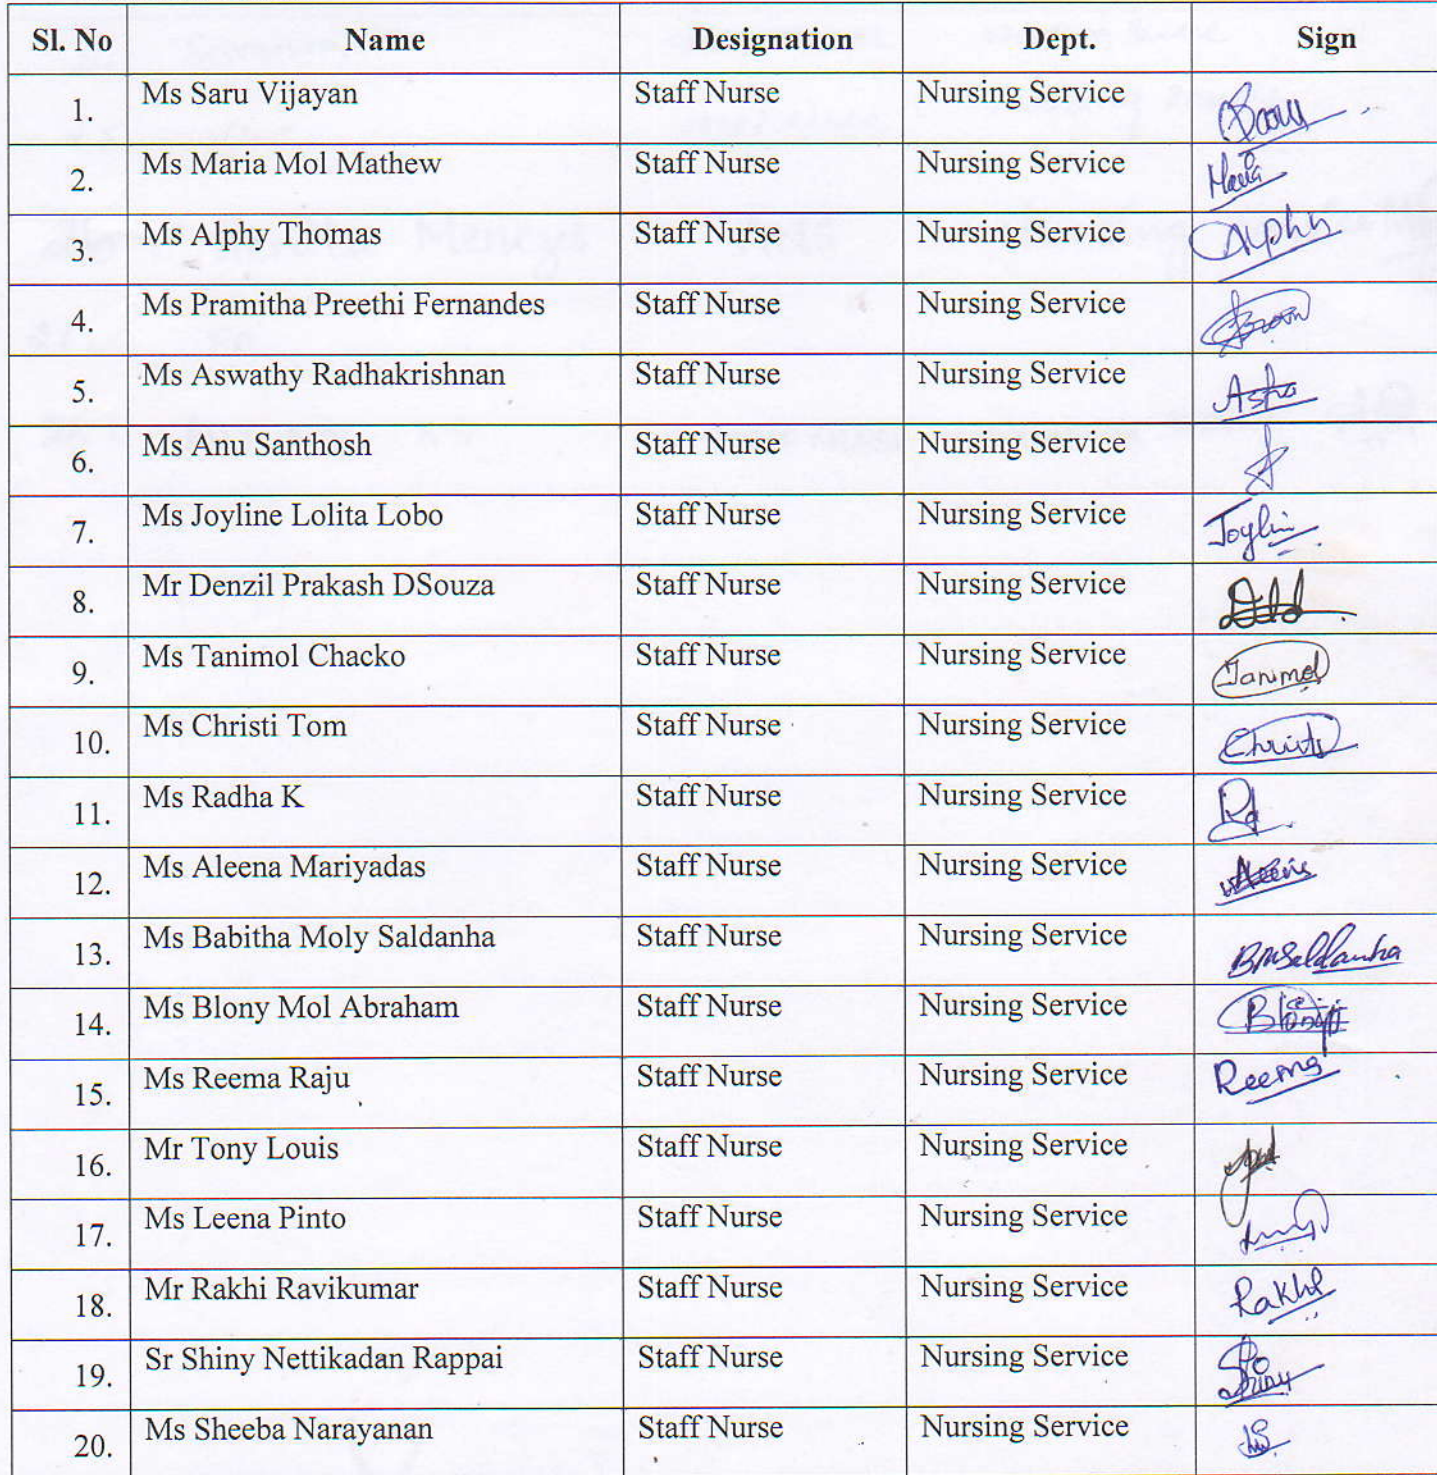 Sl. No Name Designation Dept. Sign
1. Ms Saru Vijayan Staff Nurse Nursing Service Saru
2. Ms Maria Mol Mathew Staff Nurse Nursing Service Maria
3. Ms Alphy Thomas Staff Nurse Nursing Service Alphy
4. Ms Pramitha Preethi Fernandes Staff Nurse Nursing Service
5. Ms Aswathy Radhakrishnan Staff Nurse Nursing Service
6. Ms Anu Santhosh Staff Nurse Nursing Service
7. Ms Joyline Lolita Lobo Staff Nurse Nursing Service Joylin
8. Mr Denzil Prakash DSouza Staff Nurse Nursing Service
9. Ms Tanimol Chacko Staff Nurse Nursing Service Tanimol
10. Ms Christi Tom Staff Nurse Nursing Service Christi
11. Ms Radha K Staff Nurse Nursing Service
12. Ms Aleena Mariyadas Staff Nurse Nursing Service
13. Ms Babitha Moly Saldanha Staff Nurse Nursing Service BMSaldanha
14. Ms Blony Mol Abraham Staff Nurse Nursing Service
15. Ms Reema Raju Staff Nurse Nursing Service Reema
16. Mr Tony Louis Staff Nurse Nursing Service
17. Ms Leena Pinto Staff Nurse Nursing Service
18. Mr Rakhi Ravikumar Staff Nurse Nursing Service Rakhi
19. Sr Shiny Nettikadan Rappai Staff Nurse Nursing Service Shiny
20. Ms Sheeba Narayanan Staff Nurse Nursing Service